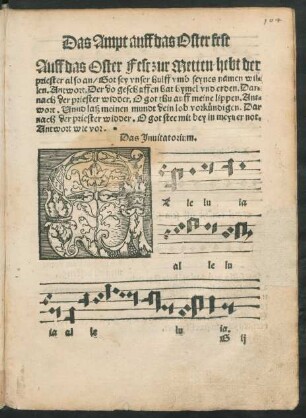 Das Ampt auff das Oster fest
Auff das Oster Fest zur Metten hebt der
priester also an/ Got sey vnser hulff vmb seynes namen wil-
len. Antwort. Der do geschaffen hat hymel vnd erden. Dar-
nach der priester widder. O got thu auff meine lippen. Ant-
wort. Vnnd laß meinen mundt dein lob vorkündigen. Dar
nach der priester widder. O got stee mir bey in meyner not.
Antwort wie vor.
Das Inuitatorium.
A le lu ia
al le lu
ia al le lu ia.
G ij